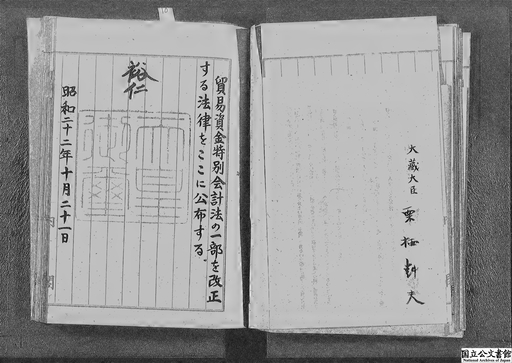 大蔵大臣 栗栖赳夫
貿易資金特別会計法の一部を改正
する法律をここに公布する。
裕仁
天皇
御璽
昭和二十二年十月二十一日
内閣
国立公文書館
National Archives of Japan